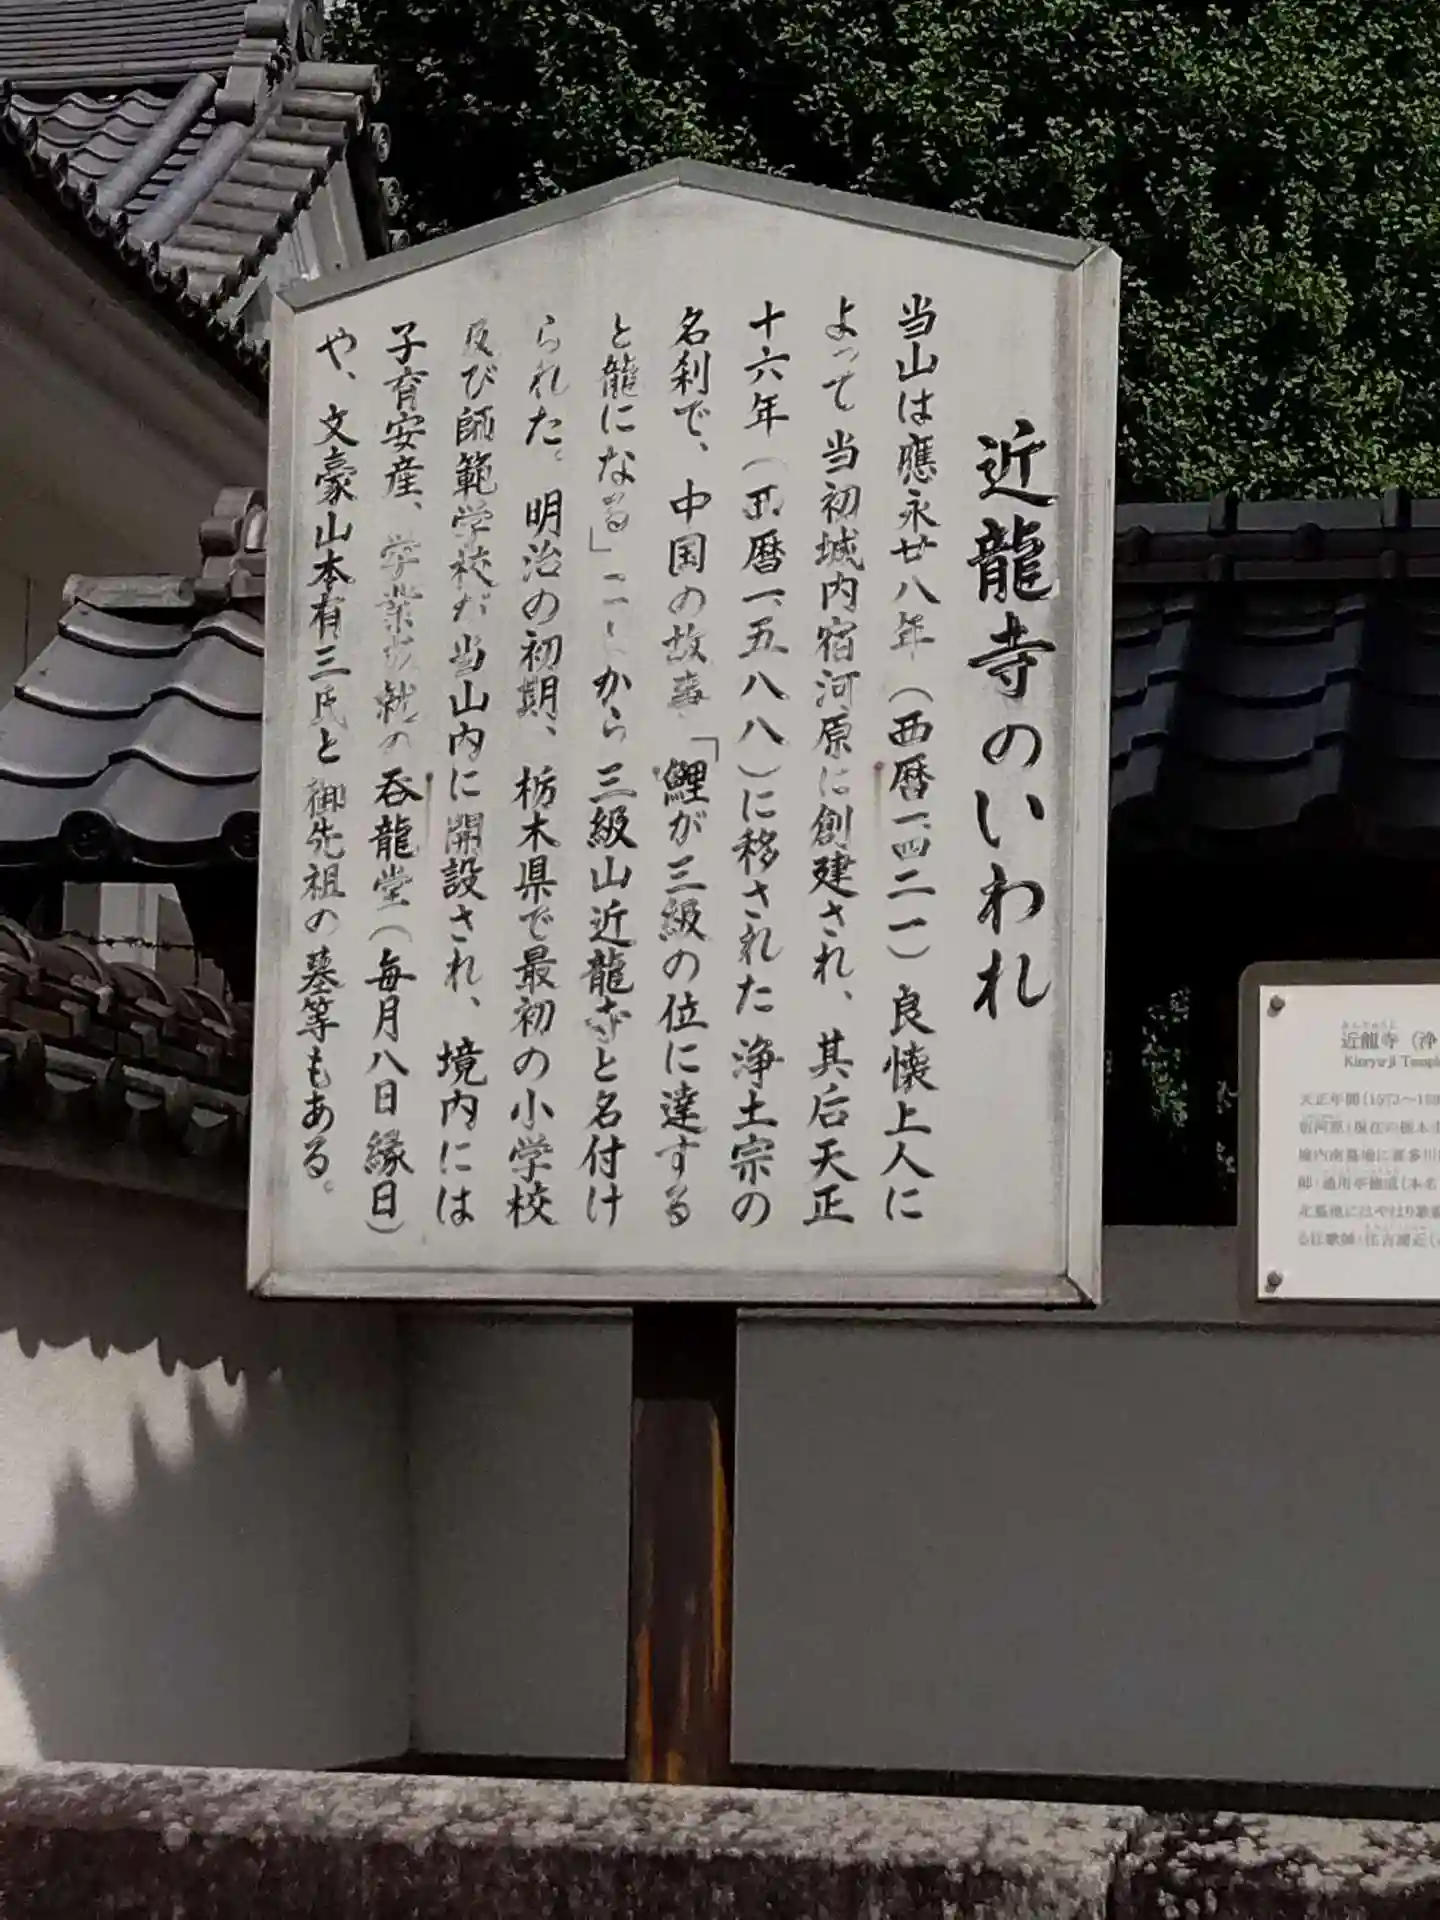 近龍寺のいわれ
当山は應永廿八年（西暦一四二一）良懐上人に
よって当初城内宿河原に創建され、其后天正
十六年（西暦一五八八）に移された浄土宗の
名刹で、中国の故事「鯉が三級の位に達する
と龍になる」ことから三級山近龍寺と名付け
られた。明治の初期、栃木県で最初の小学校
及び師範学校が当山内に開設され、境内には
子育安産、学業成就の呑龍堂（毎月八日縁日）
や、文豪山本有三氏と御先祖の墓等もある。
近龍寺（浄
Kinryuji Temple
天正年間（1573～
宿河原（現在の栃木
境内南墓地に喜多川
師・通用亭徳成（本名
北墓地にはやはり歌
る狂歌師・